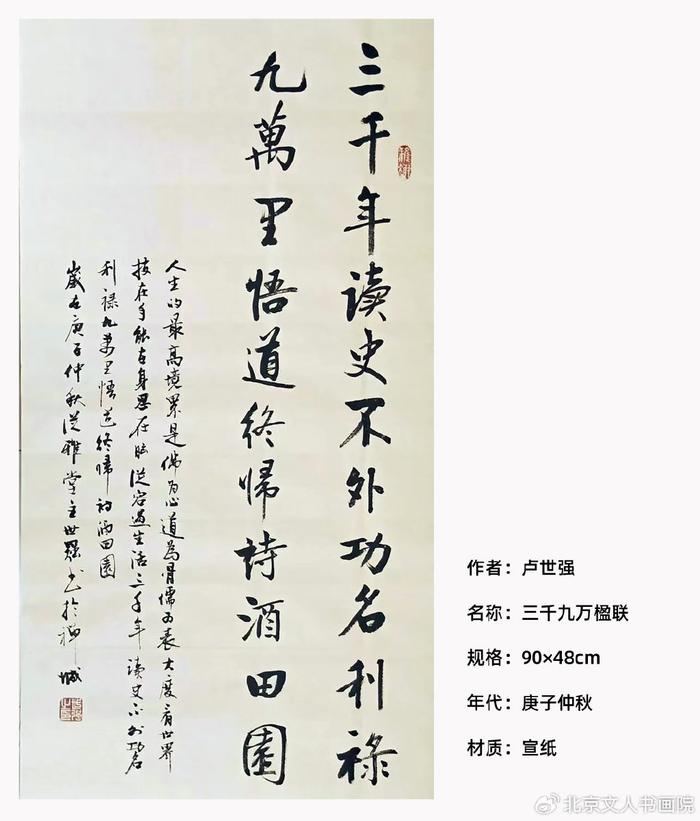 三千年读史不外功名利禄
九萬里悟道终帰詩酒田園
人生的最高境界是佛为心道為骨儒为表大度看世界
技在手能在身思在脑從容过生活三千年读史不外功名
利禄九萬里悟道终帰詩酒田園
歲在庚子仲秋從雅堂主世强书於柳城
作者：卢世强
名称：三千九万楹联
规格：90×48cm
年代：庚子仲秋
材质：宣纸
@北京文人书画院